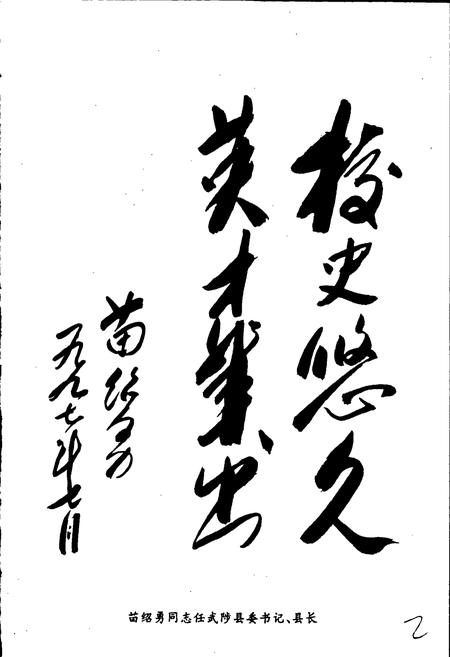 校史悠久
英才辈出
苗绍勇
一九九七年七月
苗绍勇同志任武陟县委书记、县长
2